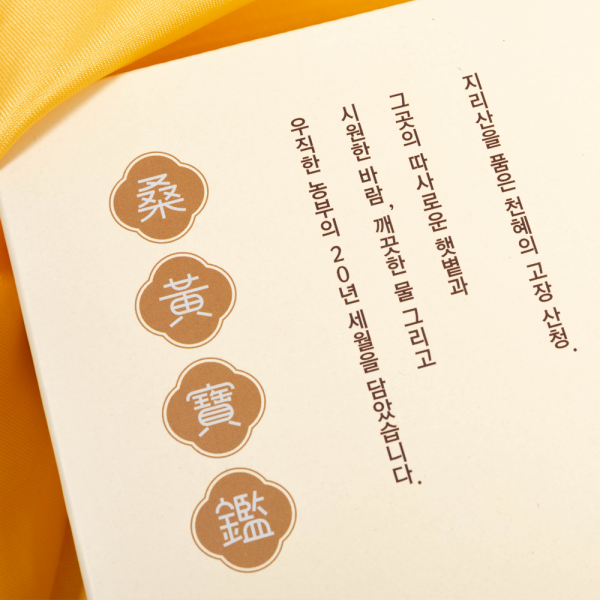 지리산을 품은 천혜의 고장 산청.
그곳의 따사로운 햇볕과
시원한 바람, 깨끗한 물 그리고
우직한 농부의 20년 세월을 담았습니다.
桑黃寶鑑